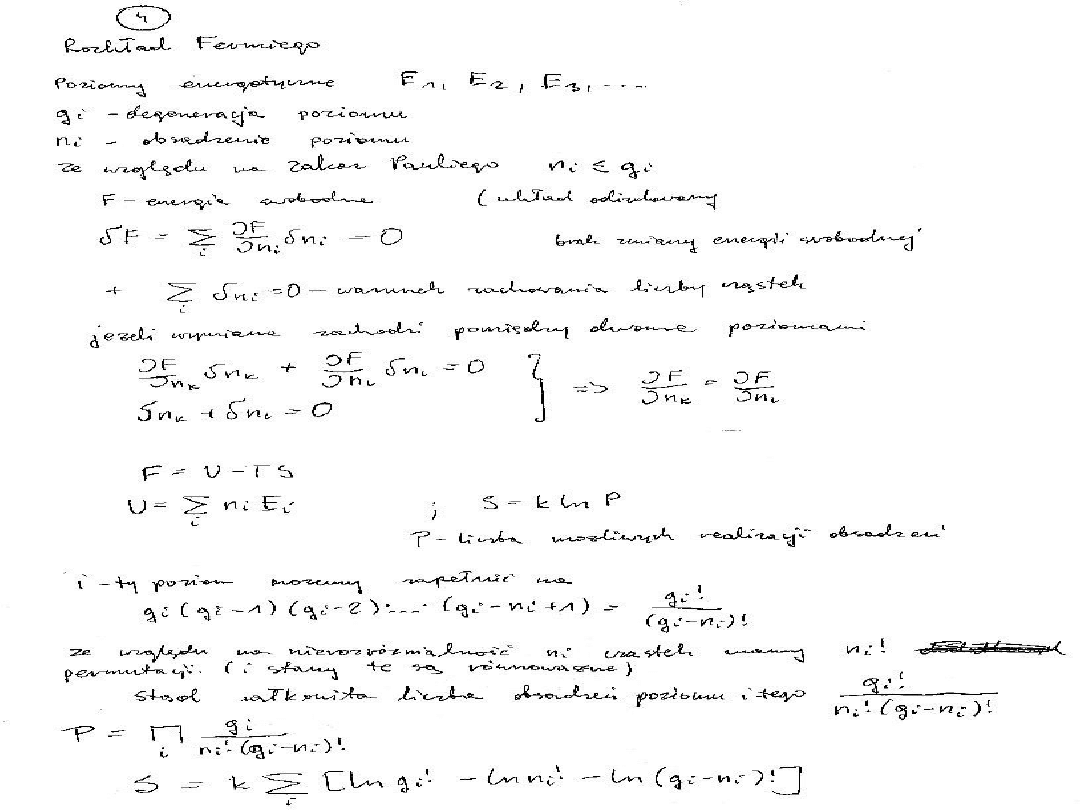 4
Rozkład Fermiego
Poziomy energetyczne E₁, E₂, E₃, ....
gᵢ - degeneracja poziomu
nᵢ - obsadzenie poziomu
ze względu na zakaz Pauliego nᵢ ≤ gᵢ
F - energia swobodna (układ odizolowany
δF = Σᵢ ∂F/∂nᵢ δnᵢ = 0 brak zmiany energii swobodnej
+ Σᵢ δnᵢ = 0 - warunek zachowania liczby cząstek
jeżeli wymiana zachodzi pomiędzy dwoma poziomami
∂F/∂nₖ δnₖ + ∂F/∂nᵢ δnᵢ = 0 } => ∂F/∂nₖ = ∂F/∂nᵢ
δnₖ + δnᵢ = 0
F = U - TS
U = Σᵢ nᵢ Eᵢ ; S = k ln P
P - liczba możliwych realizacji obsadzeń
i - ty poziom możemy zapełnić na
gᵢ (gᵢ - 1) (gᵢ - 2) ·...· (gᵢ - nᵢ + 1) = gᵢ!/(gᵢ - nᵢ)!
ze względu na nierozróżnialność nᵢ cząstek mamy nᵢ!
permutacji. (i stany te są równoważne)
Stąd całkowita liczba obsadzeń poziomu i tego gᵢ!/nᵢ!(gᵢ - nᵢ)!
P = ∏ᵢ gᵢ/nᵢ!(gᵢ - nᵢ)!
S = k Σᵢ [ln gᵢ! - ln nᵢ! - ln (gᵢ - nᵢ)!]